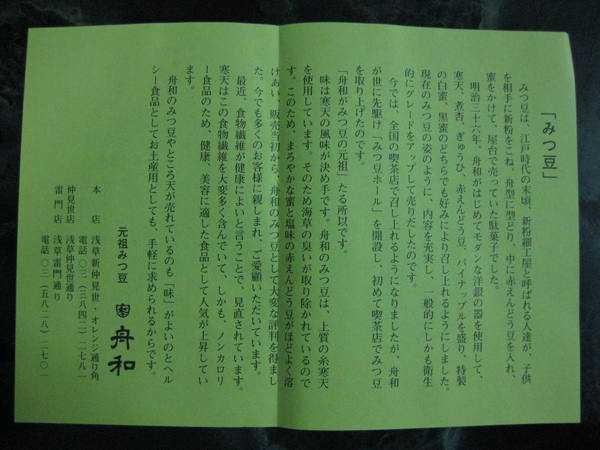 「みつ豆」
みつ豆は、江戸時代の末頃、新粉細工屋と呼ばれる人達が、子供
を相手に新粉をこね、舟型に型どり、中に赤えんどう豆を入れ、
蜜をかけて、屋台で売っていた駄菓子でした。
明治三十六年、舟和がはじめてモダンな洋銀の器を使用して、
寒天、煮杏、ぎゅうひ、赤えんどう豆、パイナップルを盛り、特製
の白蜜、黒蜜のどちらでも好みにより召し上れるようにしました。
現在のみつ豆の姿のように、内容を充実し、一般的にしかも衛生
的にグレードをアップして売りだしたのです。
今では、全国の喫茶店で召し上れるようになりましたが、舟和
が世に先駆け「みつ豆ホール」を開設し、初めて喫茶店でみつ豆
を取り上げたのです。
「舟和がみつ豆の元祖」たる所以です。
味は寒天の風味が決め手です。舟和のみつ豆は、上質の糸寒天
を使用しています。そのため海草の臭いが取り除かれているので
す。このため、まろやかな蜜と塩味の赤えんどう豆がほどよく溶
けあい、販売当初から、舟和のみつ豆として大変な評判を得まし
た。今でも多くのお客様に親しまれ、ご愛顧いただいています。
最近、食物繊維が健康によいと言うことで、見直されています。
寒天はこの食物繊維を大変多く含んでいて、しかも、ノンカロリ
ー食品のため、健康、美容に適した食品として人気が上昇してい
ます。
舟和のみつ豆やところ天が売れているのも「味」がよいのとヘル
シー食品としてお土産用としても、手軽に求められるからです。
元祖みつ豆 舟和
本店 浅草新仲見世・オレンジ通り角
電話〇三(三八四二)二七八一
仲見世店 浅草仲見世通り
雷門店 浅草雷門通り
電話〇三(五八二八)二七〇一